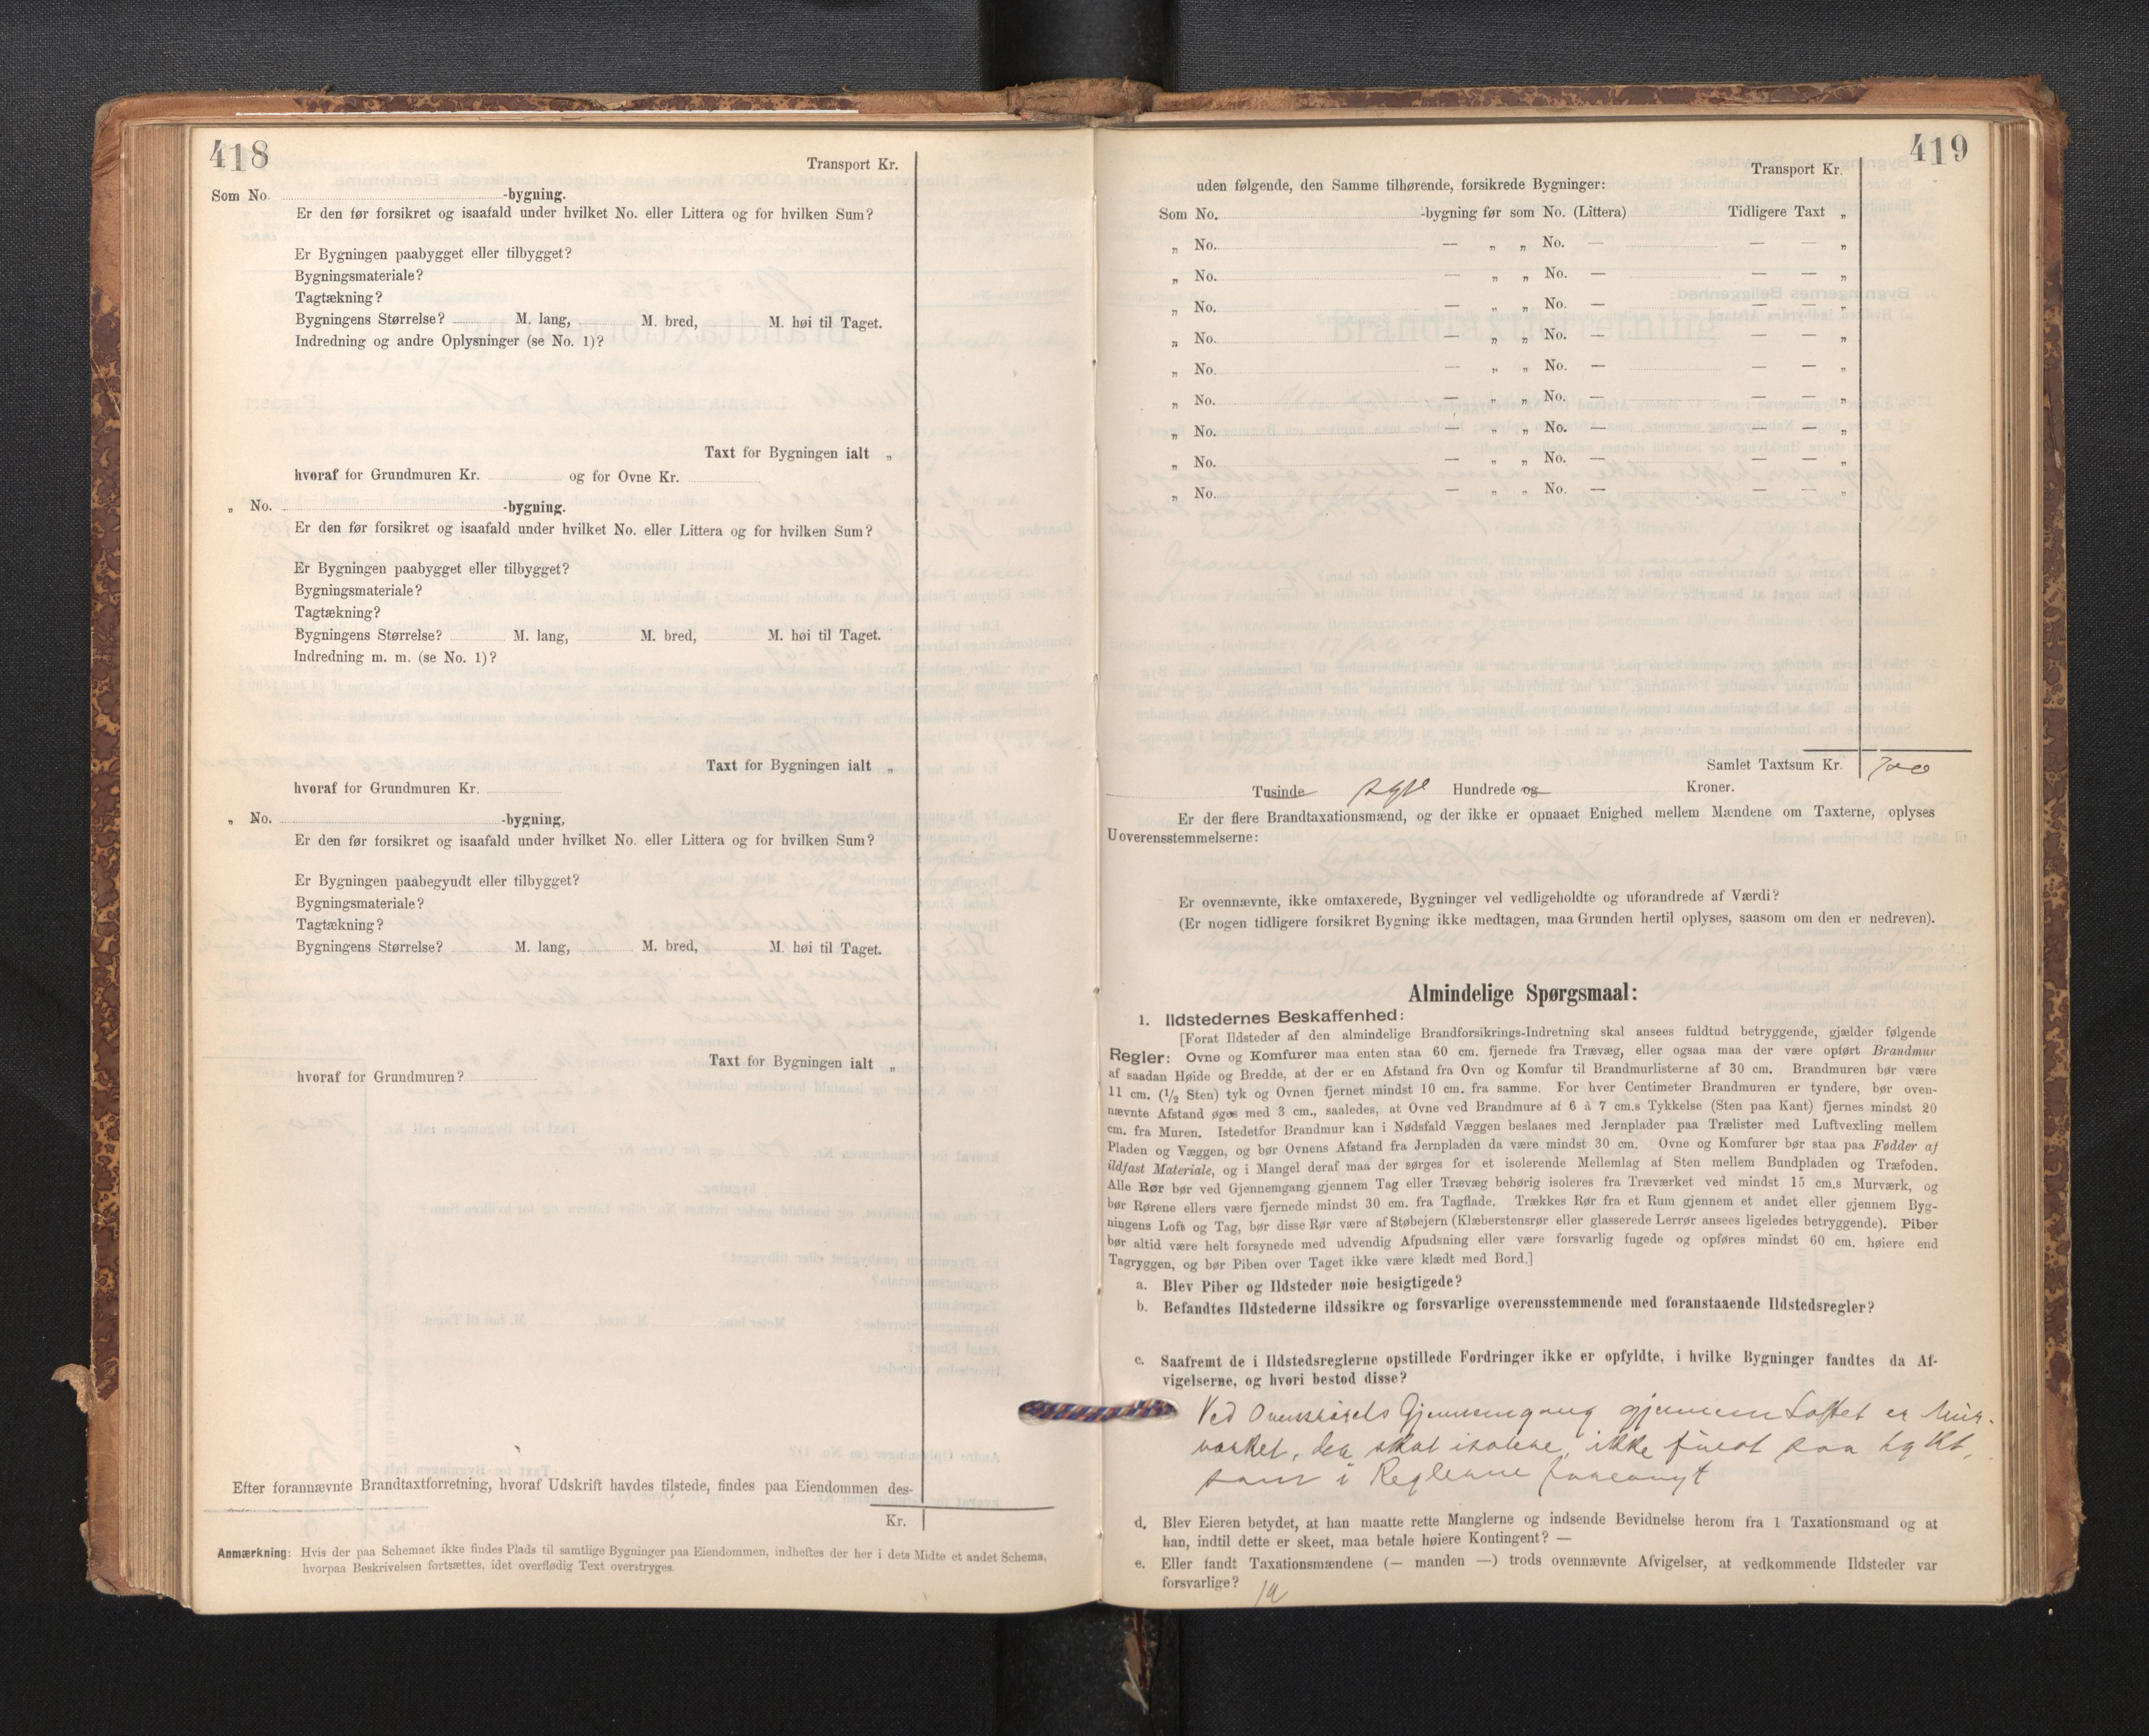 418
Transport Kr.
Som No. -bygning.
Er den før forsikret og isaafald under hvilket No. eller Littera og for hvilken Sum?
Er Bygningen paabygget eller tilbygget?
Bygningsmateriale?
Tagtækning?
Bygningens Størrelse? M. lang, M. bred, M. høi til Taget.
Indredning og andre Oplysninger (se No. 1)?
Taxt for Bygningen ialt „
hvoraf for Grundmuren Kr. og for Ovne Kr.
„ No. -bygning.
Er den før forsikret og isaafald under hvilket No. eller Littera og for hvilken Sum?
Er Bygningen paabygget eller tilbygget?
Bygningsmateriale?
Tagtækning?
Bygningens Størrelse? M. lang, M. bred, M. høi til Taget.
Indredning m. m. (se No. 1)?
Taxt for Bygningen ialt „
hvoraf for Grundmuren Kr.
„ No. -bygning,
Er den før forsikret og isaafald under hvilket No. eller Littera og for hvilken Sum?
Er Bygningen paabegyudt eller tilbygget?
Bygningsmateriale?
Tagtækning?
Bygningens Størrelse? M. lang, M. bred, M. høi til Taget.
Taxt for Bygningen ialt „
hvoraf for Grundmuren?
Efter forannævnte Brandtaxtforretning, hvoraf Udskrift havdes tilstede, findes paa Eiendommen des-
Kr.
Anmærkning: Hvis der paa Schemaet ikke findes Plads til samtlige Bygninger paa Eiendommen, indheftes der her i dets Midte et andet Schema,
hvorpaa Beskrivelsen fortsættes, idet overflødig Text overstryges.
419
Transport Kr.
uden følgende, den Samme tilhørende, forsikrede Bygninger:
Som No. -bygning før som No. (Littera) Tidligere Taxt „
„ No. — „ „ No. — — — „
„ No. — „ „ No. — — — „
„ No. — „ „ No. — — — „
„ No. — „ „ No. — — — „
„ No. — „ „ No. — — — „
„ No. — „ „ No. — — — „
„ No. — „ „ No. — — — „
„ No. — „ „ No. — — — „
„ No. — „ „ No. — — — „
Samlet Taxtsum Kr. 700
Tusinde syv Hundrede og Kroner.
Er der flere Brandtaxationsmænd, og der ikke er opnaaet Enighed mellem Mændene om Taxterne, oplyses
Uoverensstemmelserne:
Er ovennævnte, ikke omtaxerede, Bygninger vel vedligeholdte og uforandrede af Værdi?
(Er nogen tidligere forsikret Bygning ikke medtagen, maa Grunden hertil oplyses, saasom om den er nedreven).
Almindelige Spørgsmaal:
1. Ildstedernes Beskaffenhed:
[Forat Ildsteder af den almindelige Brandforsikrings-Indretning skal ansees fuldtud betryggende, gjælder følgende
Regler: Ovne og Komfurer maa enten staa 60 cm. fjernede fra Trævæg, eller ogsaa maa der være opført Brandmur
af saadan Høide og Bredde, at der er en Afstand fra Ovn og Komfur til Brandmurlisterne af 30 cm. Brandmuren bør være
11 cm. (1/2 Sten) tyk og Ovnen fjernet mindst 10 cm. fra samme. For hver Centimeter Brandmuren er tyndere, bør oven-
nævnte Afstand øges med 3 cm., saaledes, at Ovne ved Brandmure af 6 à 7 cm.s Tykkelse (Sten paa Kant) fjernes mindst 20
cm. fra Muren. Istedetfor Brandmur kan i Nødsfald Væggen beslaaes med Jernplader paa Trælister med Luftvexling mellem
Pladen og Væggen, og bør Ovnens Afstand fra Jernpladen da være mindst 30 cm. Ovne og Komfurer bør staa paa Fødder af
ildfast Materiale, og i Mangel deraf maa der sørges for et isolerende Mellemlag af Sten mellem Bundpladen og Træfoden.
Alle Rør bør ved Gjennemgang gjennem Tag eller Trævæg behørig isoleres fra Træværket ved mindst 15 cm.s Murværk, og
bør Rørene ellers være fjernede mindst 30 cm. fra Tagflade. Trækkes Rør fra et Rum gjennem et andet eller gjennem Byg-
ningens Loft og Tag, bør disse Rør være af Støbejern (Klæberstensrør eller glasserede Lerrør ansees ligeledes betryggende). Piber
bør altid være helt forsynede med udvendig Afpudsning eller være forsvarlig fugede og opføres mindst 60 cm. høiere end
Tagryggen, og bør Piben over Taget ikke være klædt med Bord.]
a. Blev Piber og Ildsteder nøie besigtigede?
b. Befandtes Ildstederne ildssikre og forsvarlige overensstemmende med foranstaaende Ildstedsregler?
c. Saafremt de i Ildstedsreglerne opstillede Fordringer ikke er opfyldte, i hvilke Bygninger fandtes da Af-
vigelserne, og hvori bestod disse?
Ved Ovensrørets Gjennemgang gjennem Loftet er Mur-
værket, der skal isolere, ikke fuldt saa tykt,
som i Reglerne
d. Blev Eieren betydet, at han maatte rette Manglerne og indsende Bevidnelse herom fra 1 Taxationsmand og at
han, indtil dette er skeet, maa betale høiere Kontingent? —
e. Eller fandt Taxationsmændene (— manden —) trods ovennævnte Afvigelser, at vedkommende Ildsteder var
forsvarlige? Ja